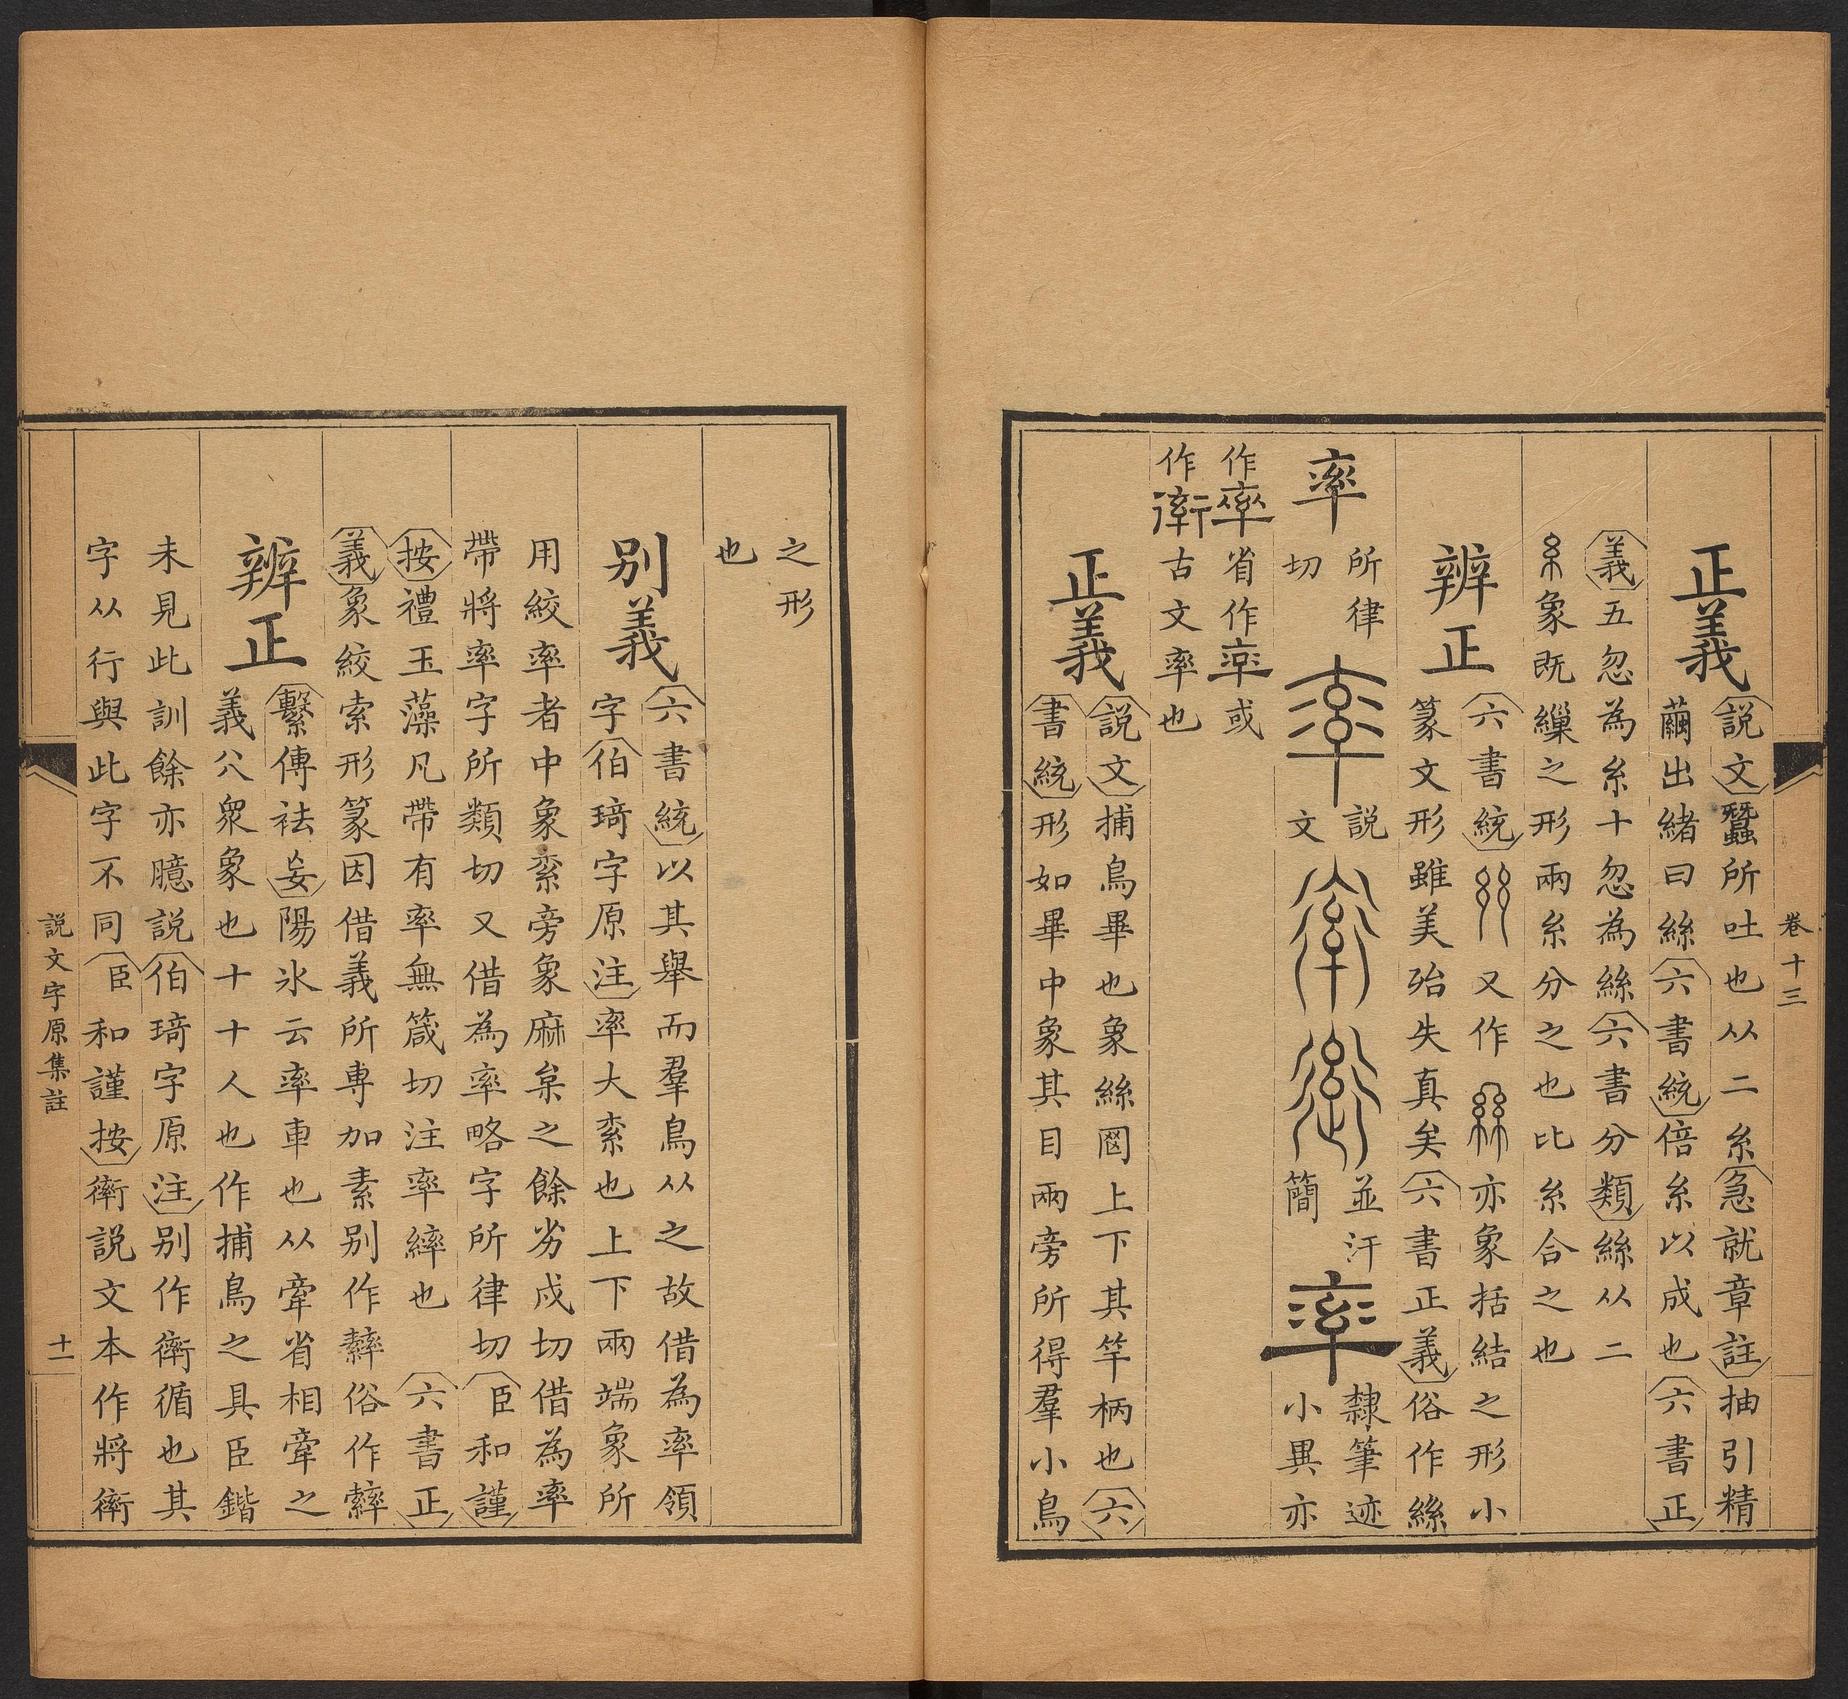 卷十三
正義
說文蠶所吐也从二糸急就章註抽引精
繭出緒曰絲六書統倍糸以成也六書正
義五忽為糸十忽為絲六書分類絲从二
糸象既繅之形兩糸分之也比糸合之也
辨正
六書統 又作 亦象括結之形小
篆文形雖美殆失真矣六書正義俗作絲
率
所律
切
說
文
並汗
簡
率
隸筆迹
小異亦
作率省作率或
作衛古文率也
正義
說文捕鳥畢也象絲罔上下其竿柄也六
書統形如畢中象其目兩旁所得羣小鳥
之形
也
別義
六書統以其舉而羣鳥从之故借為率領
字伯琦字原注率大索也上下兩端象所
用絞率者中象索旁象麻枲之餘劣戍切借為率
帶將率字所類切又借為率略字所律切臣和謹
按禮玉藻凡帶有率無箴切注率繂也六書正
義象絞索形篆因借義所專加素別作䋖俗作繂
辨正
繫傳袪妄陽氷云率車也从牽省相牽之
義八眾象也十十人也作捕鳥之具臣鍇
未見此訓餘亦臆說伯琦字原注別作衛循也其
字从行與此字不同臣和謹按衛說文本作將衛
說文字原集註
十一